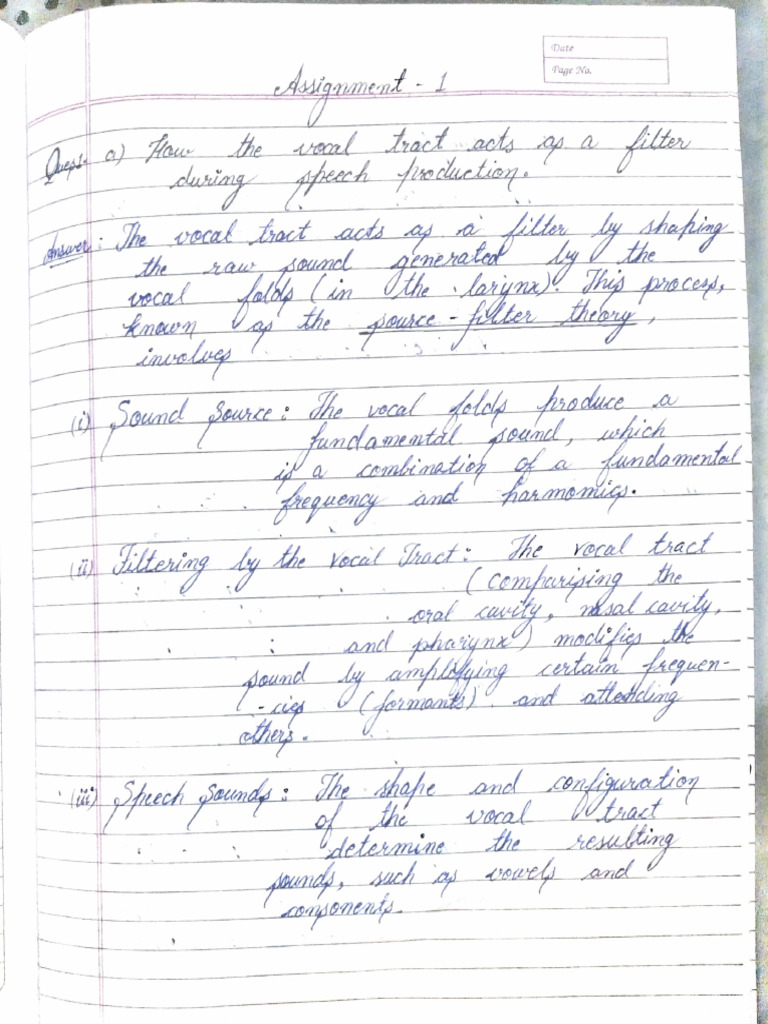 Date
Page No.
Assignment - 1
Ques:- a) How the vocal tract acts as a filter
during speech production.
Answer: The vocal tract acts as a filter by shaping
the raw sound generated by the
vocal folds (in the larynx). This process,
known as the source-filter theory,
involves
(i) Sound Source: The vocal folds produce a
fundamental sound, which
is a combination of a fundamental
frequency and harmomics.
(ii) Filtering by the Vocal Tract: The vocal tract
(comparising the
oral cavity, nasal cavity,
and pharynx) modifies the
sound by amplifying certain frequen-
-cies (formants) and
others.
(iii) Speech Sounds: The shape and configuration
of the vocal tract
determine the resulting
sounds, such as vowels and
consonents.